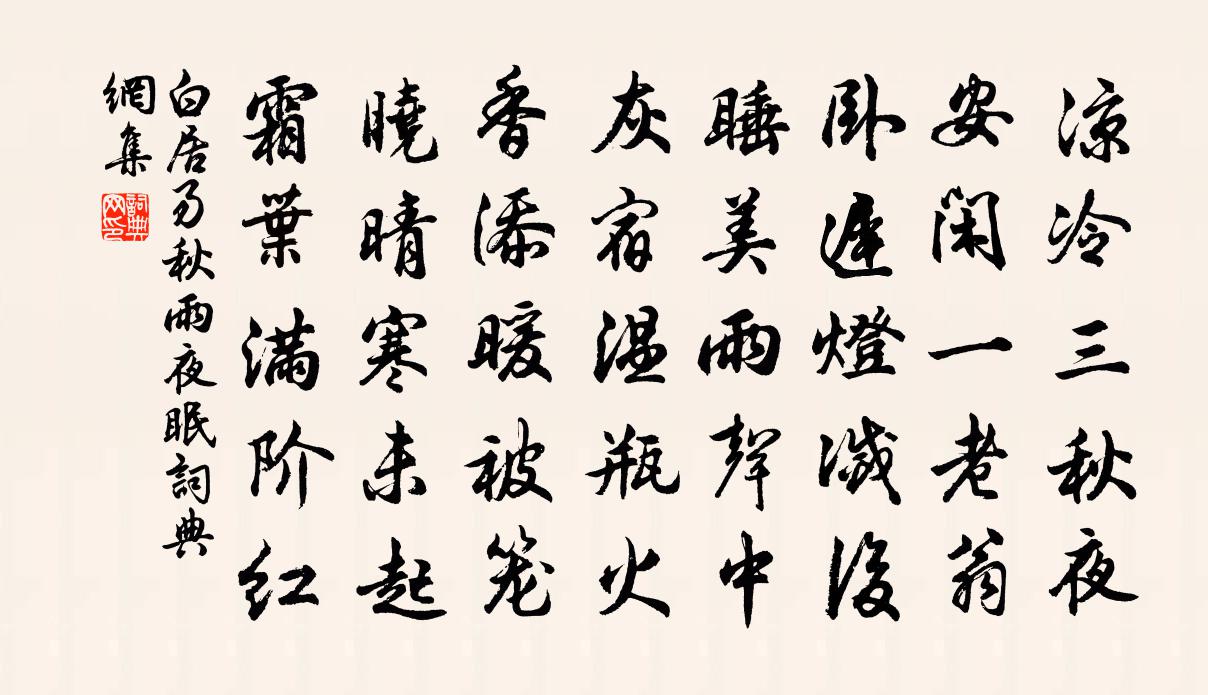 凉冷三秋夜
安闲一老翁
卧遲燈滅後
睡美雨聲中
灰宿温瓶火
香添暖被笼
曉晴寒未起
霜葉满阶红
白居易秋雨夜眠詞典
網集
詞典网印